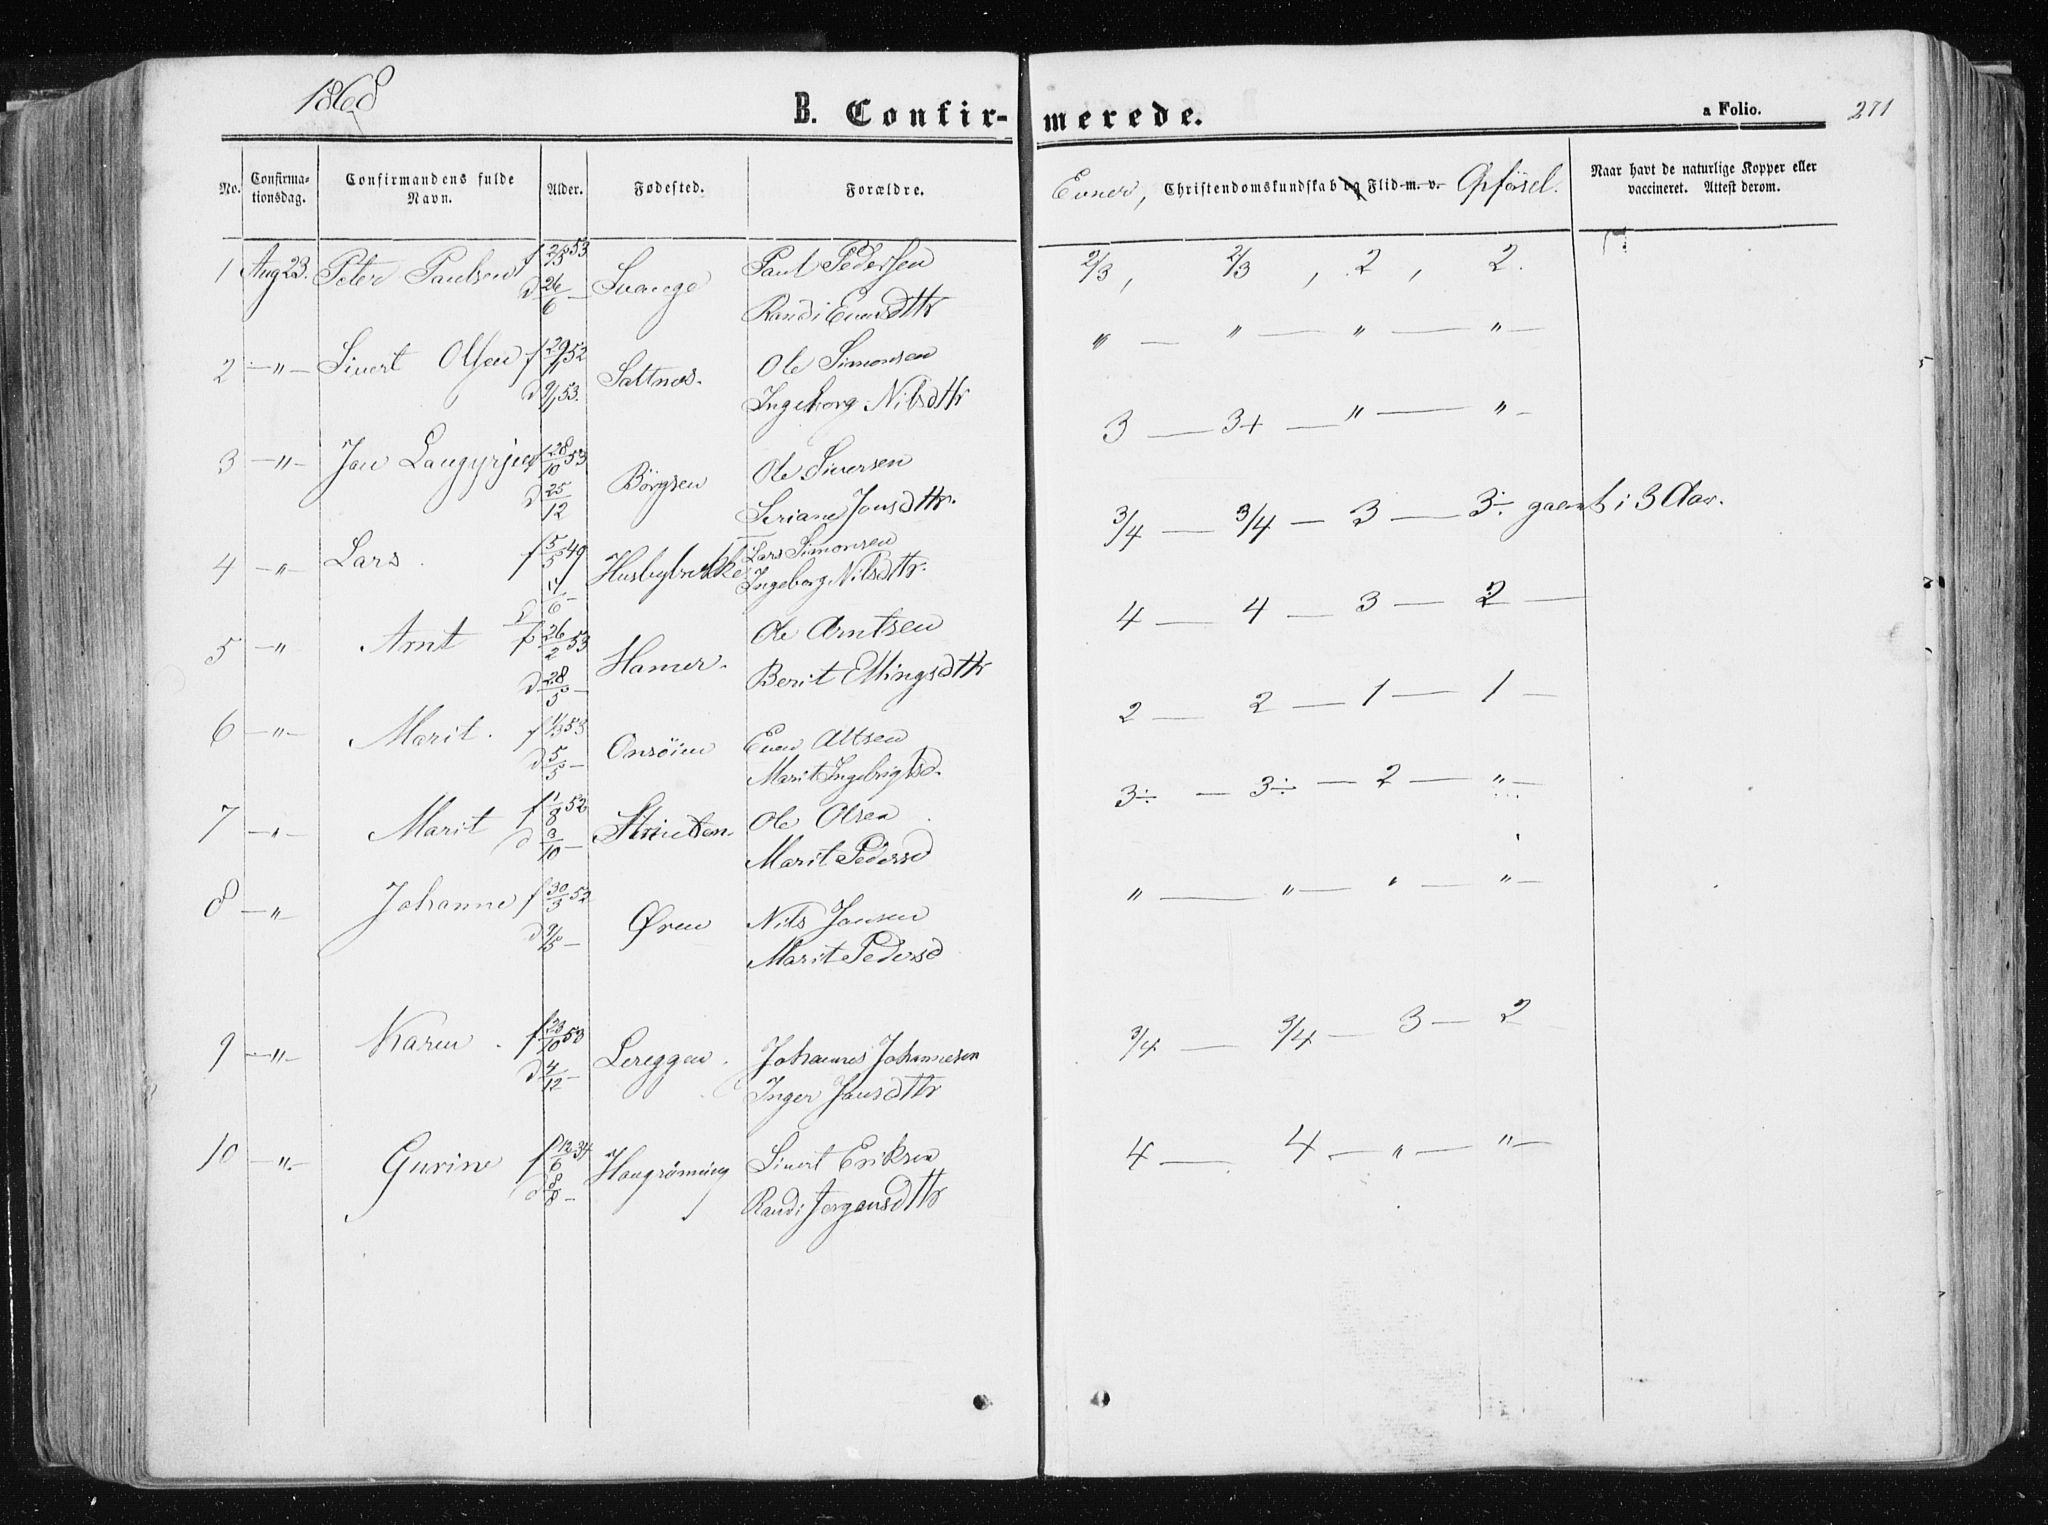 1868
B. Confirmerede.
a Folio. 271
No. Confirmationsdag. Confirmandens fulde Navn. Alder. Fødested. Forældre. Evner, Christendomskundskab og Flid m. v. Opførsel. Naar havt de naturlige Kopper eller vaccineret. Attest derom.
1 Aug 23. Peter Paulsen f 53 Paul Pedersen 2/3, 2/3, 2, 2.
d 26/6 — Randi
2 —〃— Sivert Olsen f 52 Saltnes. Ole Simonsen 〃 — 〃 — 〃 — 〃 —
d 9/1 53. Ingeborg Nilsdtr
3 —〃— Jon f 28/10 53 Börgsen Ole Siversen 3 — 3+ — 〃 — 〃 —
d 25/12 Jonsdtr.
4 —〃— Lars. f 5/5 49 Lars Simonsen 3/4 — 3/4 — 3 — 3÷ i 3 Aar.
Ingeborg Nilsdtr.
5 —〃 Arnt f 26/2 53 Hamer. Ole Arntsen 4 — 4 — 3 — 2 —
d 28/5 — Berit Ellingsdtr
6 —〃— Marit. f 1/3 53 Onsöien Even 2 — 2 — 1 — 1 —
d 5/5 — Marit Ingebrigtsd.
7 —〃— Marit f 1/8 52 Ole Olsen 3÷ — 3÷ — 2 — 〃 —
d 3/10 — Marit Pedersd
8 —〃— Johanne f 30/3 52 Øren Nils Jonsen 〃 — 〃 — 〃 — 〃 —
d 9/5 — Marit Pedersd
9 —〃— Karen. f 23/10 53 Lereggen. Johannes Johannesen 3/4 — 3/4 — 3 — 2
d 4/12 — Inger Jonsdtr
10 —〃— Gurine f 12/6 34 Sivert Eriksen 4 — 4 — 〃 — 〃 —
d 8/8 — Randi Jørgensdtr